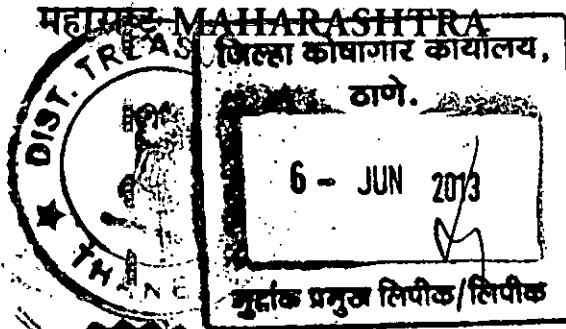 महाराष्ट्र MAHARASHTRA
DIST. TREAS
THANE
जिल्हा कोषागार कार्यालय,
ठाणे.
6 - JUN 2013
मुद्रांक प्रमुख लिपीक/लिपीक